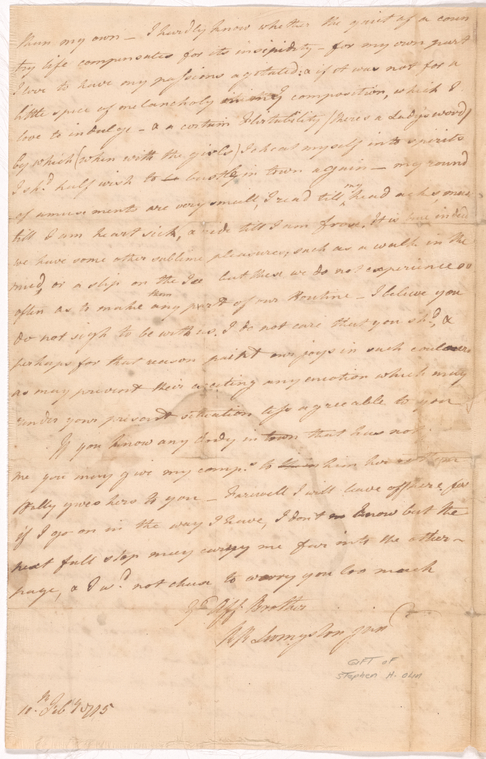 than my own – I hardly know whether the quiet of a coun
try life compensates for its insipidity – for my own part
I love to have my passions agitated; & if it was not for a
little spice of melancholy in my composition, which I
love to indulge – & a certain (there's a Ladys word)
by which (when with the girls) I heat myself into spirits
I shd half wish to bustle in town again – my round
of amusements are very small, I read till my head achs
till I am heart sick, & ride till I am froze. It is true indeed
we have some other sublime pleasures, such as a walk in the
mud, or a slip on the Ice but these we do not experience so
often as to make them any part of our Routine – I believe you
do not sigh to be with us, I do not care that you shd, &
perhaps for that reason paint our joys in such colours
as may prevent their exciting any emotion which may
render your present situation less agreeable to you
If you know any body in town that has not
me you may give my compts to him her
gives hers to you – Farewell I will leave off here, for
if I go on in the way I have, I don't know but the
next full stop may carry me far into the other
page, & I wd not chuse to worry you too much
Yr Aff Brother
RR Livingston junr
GIFT OF
Stephen H. Olin
10th Feby 1775